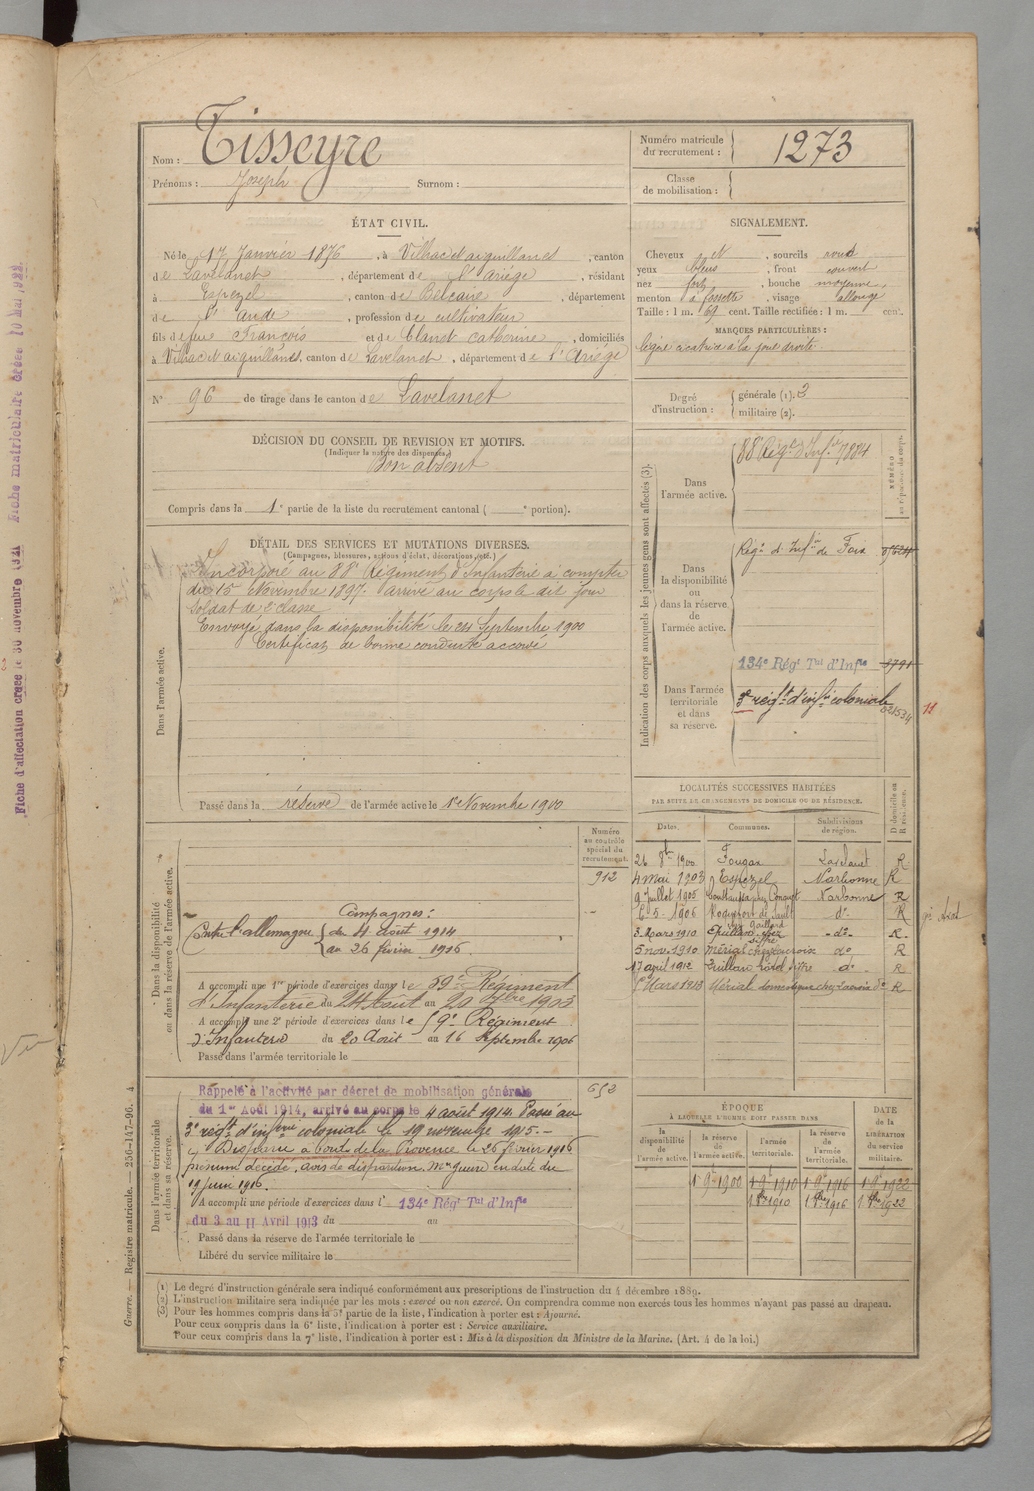 Nom : Tisseyre
Prénoms : Joseph Surnom :
Numéro matricule du recrutement : 1273
Classe de mobilisation :
ÉTAT CIVIL.
Né le 17 Janvier 1876, à Vilhac et aiguillanes, canton
de Lavelanet, département de l'Ariége, résidant
à Espezel, canton de Belcaire, département
de l'aude, profession de cultivateur
fils de feu François et de Clanet Catherine, domiciliés
à Vilhac et aiguillanes, canton de Lavelanet, département de l'Ariége
N° 96 de tirage dans le canton de Lavelanet
SIGNALEMENT.
Cheveux et, sourcils roux
yeux bleus, front couvert
nez fort, bouche moyenne,
menton à fossette, visage allongé
Taille : 1 m. 69 cent. Taille rectifiée : 1 m. cent.
MARQUES PARTICULIÈRES :
légère cicatrice à la joue droite.
Degré d'instruction : générale (1). 3
militaire (2).
DÉCISION DU CONSEIL DE REVISION ET MOTIFS.
(Indiquer la nature des dispenses.)
Bon absent
Compris dans la 1e partie de la liste du recrutement cantonal ( e portion).
DÉTAIL DES SERVICES ET MUTATIONS DIVERSES.
(Campagnes, blessures, actions d'éclat, décorations, etc.)
Dans l'armée active.
Incorporé au 88e Régiment d'Infanterie à compter
du 15 Novembre 1897. arrivé au corps le dit jour
Soldat de 2e classe
Envoyé dans la disponibilité le 24 Septembre 1900
Certificat de bonne conduite accordé
Passé dans la réserve de l'armée active le 1er Novembre 1900
Indication des corps auxquels les jeunes gens sont affectés (3).
NUMÉRO
Dans l'armée active.
88e Régt d'Infie 7884
Dans la disponibilité ou dans la réserve de l'armée active.
Régt d'Infie de Foix
Dans l'armée territoriale et dans sa réserve.
134e Régt Tal d'Infie
3e régt d'infie coloniale
11
LOCALITÉS SUCCESSIVES HABITÉES
PAR SUITE DE CHANGEMENTS DE DOMICILE OU DE RÉSIDENCE.
Dates. Communes. Subdivisions de région. D domicile ou R résidence.
26 8bre 1900 Fougax Lavelanet R
4 mai 1903 Espezel Narbonne R
9 Juillet 1905 Narbonne R
6. 5. 1906 Rodome de Sault do R
3 Mars 1910 Quillan chez Gaillard do R
5 nov. 1910 Mérial chez Lacroix do R
17 april 1912 Quillan hôtel Siffre do R
1er Mars 1913 Mérial domestique chez Lacroix do R
Dans la disponibilité ou dans la réserve de l'armée active.
Numéro au contrôle spécial du recrutement.
912
Campagnes :
Contre l'allemagne du 4 août 1914
au 26 février 1916
A accompli une 1re période d'exercices dans le 59e Régiment
d'Infanterie du 24 Août au 20 7bre 1903
A accompli une 2e période d'exercices dans le 59e Régiment
d'Infanterie du 20 Août au 16 Septembre 1906
Passé dans l'armée territoriale le
Dans l'armée territoriale et dans sa réserve.
652
Rappelé à l'activité par décret de mobilisation générale
du 1er Août 1914, arrivé au corps le 4 août 1914. Passé au
3e régt d'infrie coloniale le 19 novembre 1915. –
Disparu à bord de la Provence le 26 février 1916
présumé décédé, avis de disparition Mre guerre en date du
19 juin 1916.
A accompli une période d'exercices dans l' 134e Régt Tal d'Infie
du 3 au 11 Avril 1913 du au
Passé dans la réserve de l'armée territoriale le
Libéré du service militaire le
ÉPOQUE
À LAQUELLE L'HOMME DOIT PASSER DANS
DATE DE LA LIBÉRATION DU SERVICE MILITAIRE.
la disponibilité de l'armée active. la réserve de l'armée active. l'armée territoriale. la réserve de l'armée territoriale.
1er 9bre 1900 1 9bre 1910 1 9bre 1916 1 9bre 1922
1 8bre 1910 1 8bre 1916 1 8bre 1922
(1) Le degré d'instruction générale sera indiqué conformément aux prescriptions de l'instruction du 4 décembre 1889.
(2) L'instruction militaire sera indiquée par les mots : exercé ou non exercé. On comprendra comme non exercés tous les hommes n'ayant pas passé au drapeau.
(3) Pour les hommes compris dans la 5e partie de la liste, l'indication à porter est : Ajourné.
Pour ceux compris dans la 6e liste, l'indication à porter est : Service auxiliaire.
Pour ceux compris dans la 7e liste, l'indication à porter est : Mis à la disposition du Ministre de la Marine. (Art. 4 de la loi.)
Guerre. — Registre matricule. — 256-147-96. 4
Fiche d'affectation créée le 30 novembre 1921 Fiche matriculaire créée 10 Mai 1922.